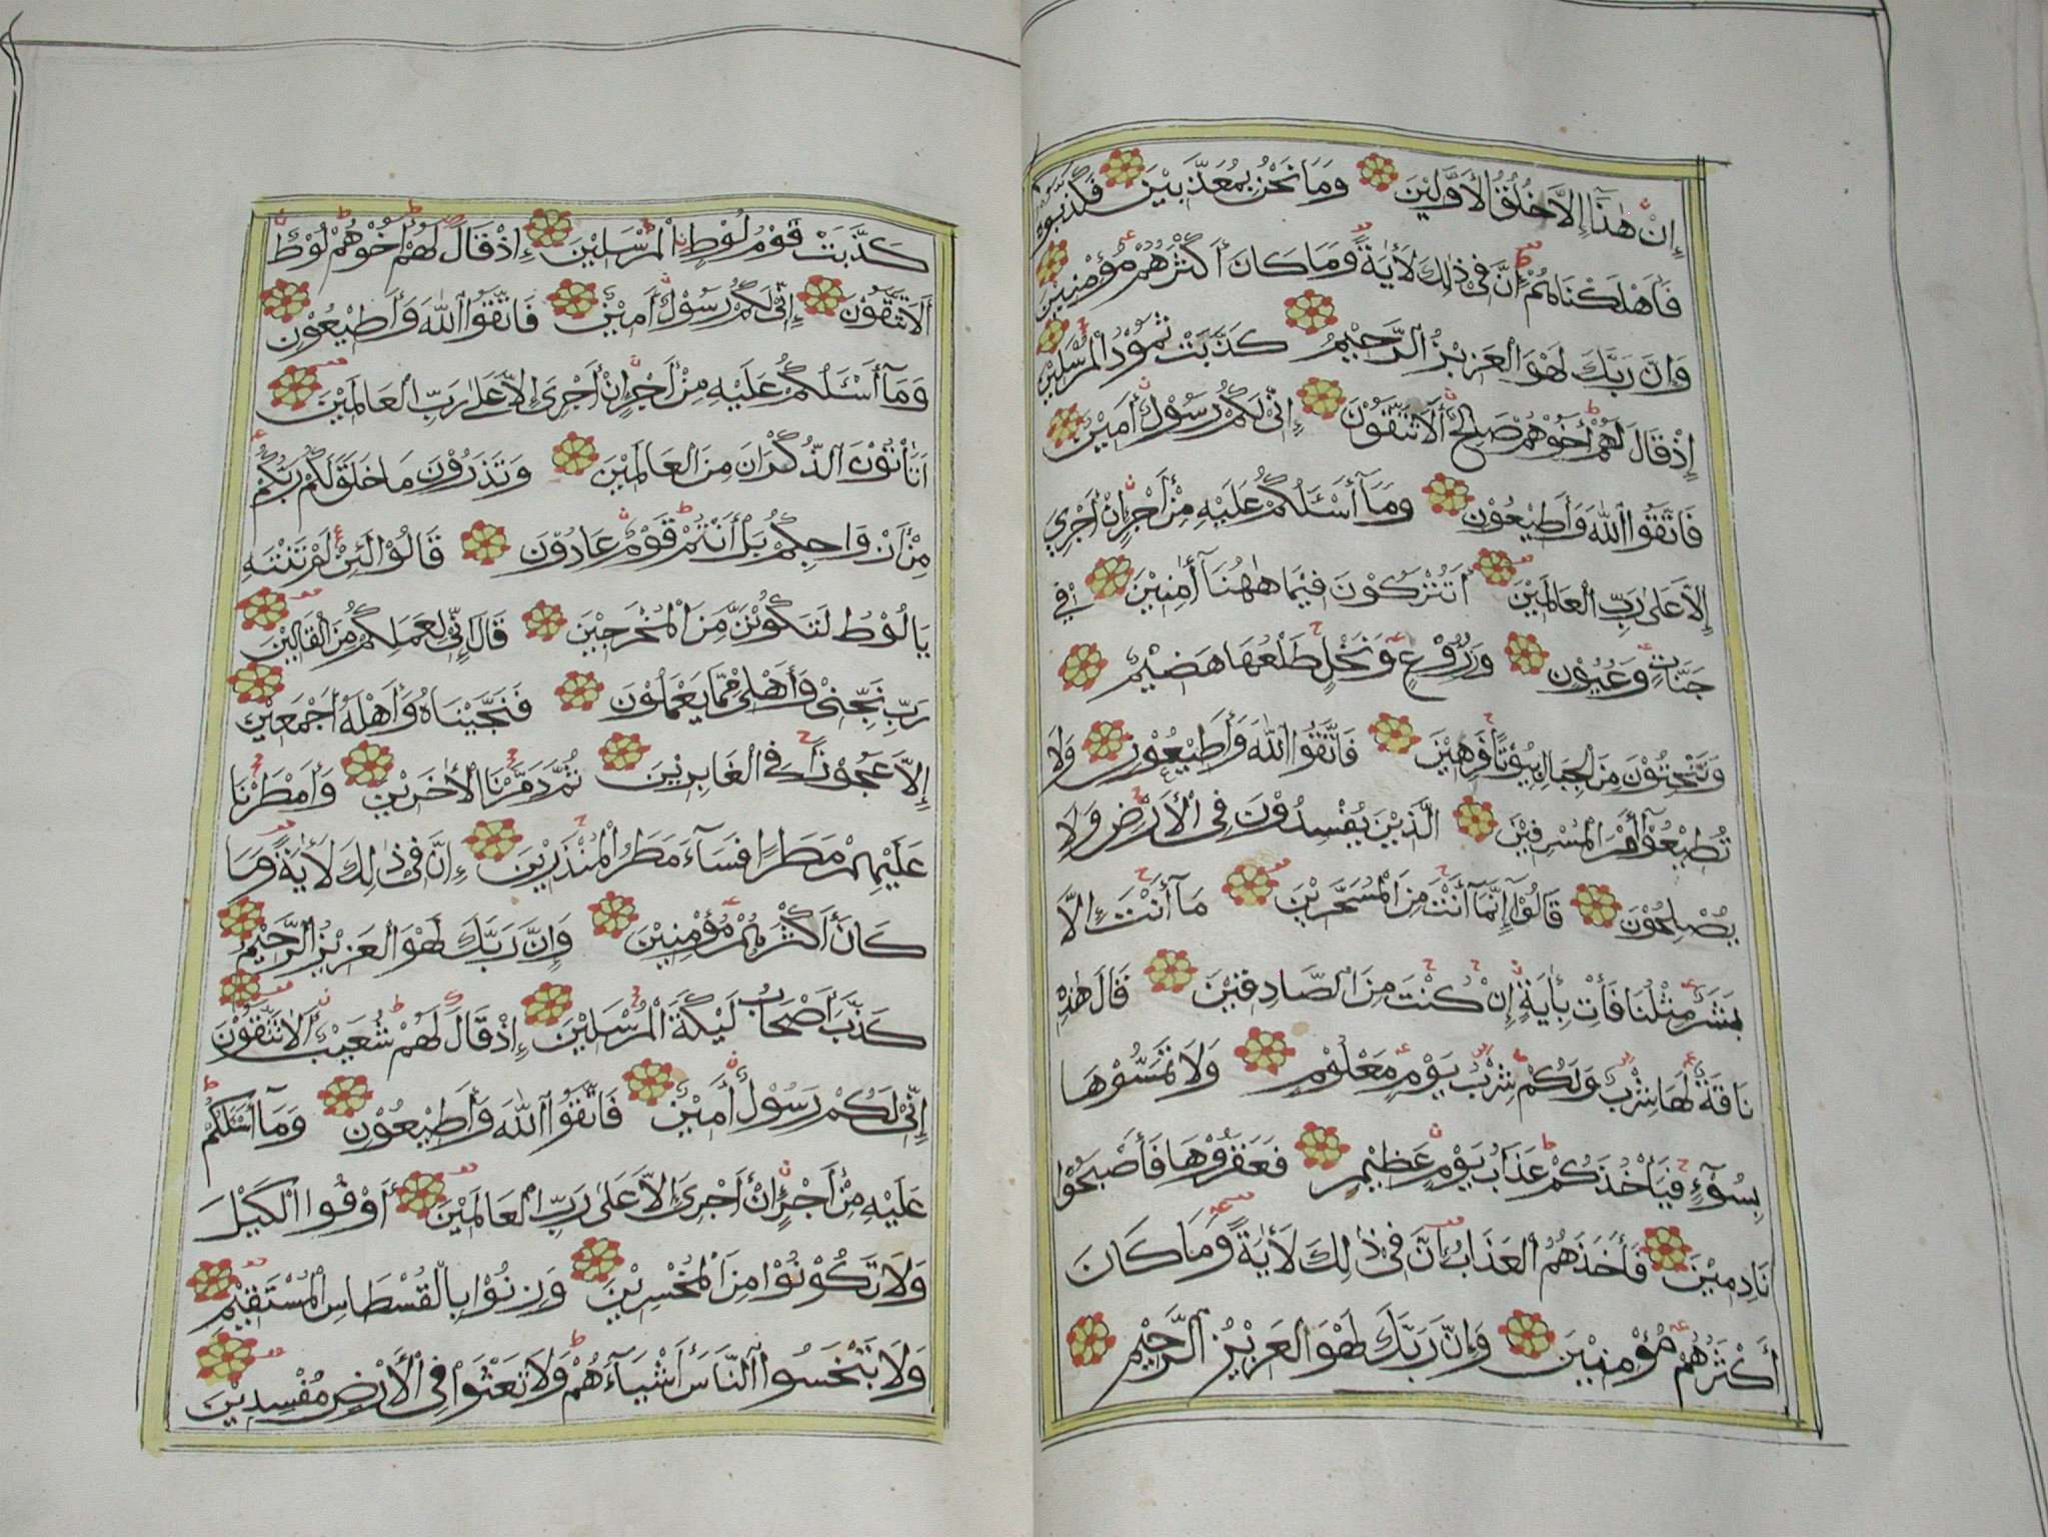 إِنْ هٰذَا إِلَّا خُلُقُ الْأَوَّلِيْنَ وَمَا نَحْنُ بِمُعَذَّبِيْنَ فَكَذَّبُوْهُ
فَأَهْلَكْنَاهُمْ إِنَّ فِيْ ذٰلِكَ لَأٰيَةً وَمَا كَانَ أَكْثَرُهُمْ مُؤْمِنِيْنَ
وَإِنَّ رَبَّكَ لَهُوَ الْعَزِيْزُ الرَّحِيْمُ كَذَّبَتْ ثَمُوْدُ الْمُرْسَلِيْنَ
إِذْ قَالَ لَهُمْ أَخُوْهُمْ صَالِحٌ أَلَا تَتَّقُوْنَ إِنِّيْ لَكُمْ رَسُوْلٌ أَمِيْنٌ
فَاتَّقُوا اللّٰهَ وَأَطِيْعُوْنِ وَمَآ أَسْـَٔلُكُمْ عَلَيْهِ مِنْ أَجْرٍ إِنْ أَجْرِيَ
إِلَّا عَلٰى رَبِّ الْعَالَمِيْنَ أَتُتْرَكُوْنَ فِيْمَا هٰهُنَآ أٰمِنِيْنَ فِيْ
جَنَّاتٍ وَعُيُوْنٍ وَزُرُوْعٍ وَنَخْلٍ طَلْعُهَا هَضِيْمٌ
وَتَنْحِتُوْنَ مِنَ الْجِبَالِ بُيُوْتًا فَرِهِيْنَ فَاتَّقُوا اللّٰهَ وَأَطِيْعُوْنِ وَلَا
تُطِيْعُوْآ أَمْرَ الْمُسْرِفِيْنَ الَّذِيْنَ يُفْسِدُوْنَ فِي الْأَرْضِ وَلَا
يُصْلِحُوْنَ قَالُوْآ إِنَّمَآ أَنْتَ مِنَ الْمُسَحَّرِيْنَ مَآ أَنْتَ إِلَّا
بَشَرٌ مِثْلُنَا فَأْتِ بِأٰيَةٍ إِنْ كُنْتَ مِنَ الصَّادِقِيْنَ قَالَ هٰذِهِ
نَاقَةٌ لَهَا شِرْبٌ وَلَكُمْ شِرْبُ يَوْمٍ مَعْلُوْمٍ وَلَا تَمَسُّوْهَا
بِسُوْٓءٍ فَيَأْخُذَكُمْ عَذَابُ يَوْمٍ عَظِيْمٍ فَعَقَرُوْهَا فَأَصْبَحُوْا
نَادِمِيْنَ فَأَخَذَهُمُ الْعَذَابُ إِنَّ فِيْ ذٰلِكَ لَأٰيَةً وَمَا كَانَ
أَكْثَرُهُمْ مُؤْمِنِيْنَ وَإِنَّ رَبَّكَ لَهُوَ الْعَزِيْزُ الرَّحِيْمُ
كَذَّبَتْ قَوْمُ لُوْطٍ الْمُرْسَلِيْنَ إِذْ قَالَ لَهُمْ أَخُوْهُمْ لُوْطٌ
أَلَا تَتَّقُوْنَ إِنِّيْ لَكُمْ رَسُوْلٌ أَمِيْنٌ فَاتَّقُوا اللّٰهَ وَأَطِيْعُوْنِ
وَمَآ أَسْـَٔلُكُمْ عَلَيْهِ مِنْ أَجْرٍ إِنْ أَجْرِيَ إِلَّا عَلٰى رَبِّ الْعَالَمِيْنَ
أَتَأْتُوْنَ الذُّكْرَانَ مِنَ الْعَالَمِيْنَ وَتَذَرُوْنَ مَا خَلَقَ لَكُمْ رَبُّكُمْ
مِنْ أَزْوَاجِكُمْ بَلْ أَنْتُمْ قَوْمٌ عَادُوْنَ قَالُوْا لَئِنْ لَمْ تَنْتَهِ
يَا لُوْطُ لَتَكُوْنَنَّ مِنَ الْمُخْرَجِيْنَ قَالَ إِنِّيْ لِعَمَلِكُمْ مِنَ الْقَالِيْنَ
رَبِّ نَجِّنِيْ وَأَهْلِيْ مِمَّا يَعْمَلُوْنَ فَنَجَّيْنَاهُ وَأَهْلَهُ أَجْمَعِيْنَ
إِلَّا عَجُوْزًا فِي الْغَابِرِيْنَ ثُمَّ دَمَّرْنَا الْأٰخَرِيْنَ وَأَمْطَرْنَا
عَلَيْهِمْ مَطَرًا فَسَآءَ مَطَرُ الْمُنْذَرِيْنَ إِنَّ فِيْ ذٰلِكَ لَأٰيَةً وَمَا
كَانَ أَكْثَرُهُمْ مُؤْمِنِيْنَ وَإِنَّ رَبَّكَ لَهُوَ الْعَزِيْزُ الرَّحِيْمُ
كَذَّبَ أَصْحَابُ لَيْكَةَ الْمُرْسَلِيْنَ إِذْ قَالَ لَهُمْ شُعَيْبٌ أَلَا تَتَّقُوْنَ
إِنِّيْ لَكُمْ رَسُوْلٌ أَمِيْنٌ فَاتَّقُوا اللّٰهَ وَأَطِيْعُوْنِ وَمَآ أَسْـَٔلُكُمْ
عَلَيْهِ مِنْ أَجْرٍ إِنْ أَجْرِيَ إِلَّا عَلٰى رَبِّ الْعَالَمِيْنَ أَوْفُوا الْكَيْلَ
وَلَا تَكُوْنُوْا مِنَ الْمُخْسِرِيْنَ وَزِنُوْا بِالْقُسْطَاسِ الْمُسْتَقِيْمِ
وَلَا تَبْخَسُوا النَّاسَ أَشْيَآءَهُمْ وَلَا تَعْثَوْا فِي الْأَرْضِ مُفْسِدِيْنَ